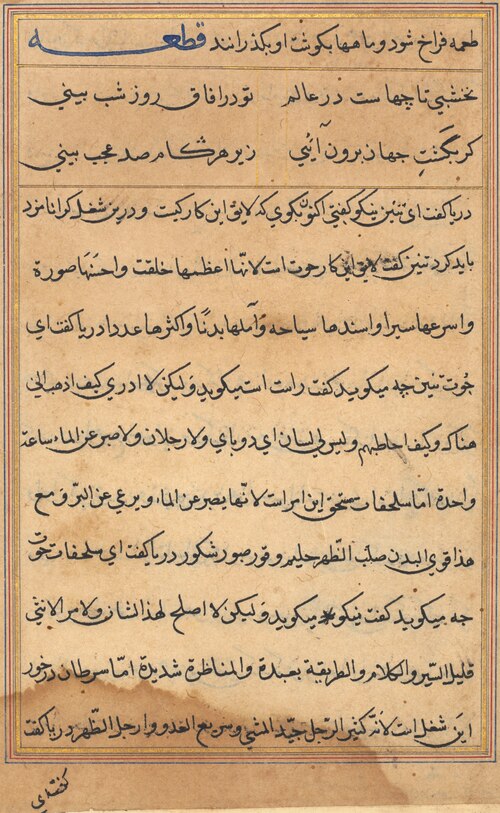 طعمه فراخ شود و ماهیها بکوشت او بکذرانند قطعه
نخشبي تا چهاست در عالم تو در افاق روز شب بیني
کر بگشت جهان برون آئي زیر هر کام صد عجب بیني
دریا کفت ای تنین نیکو کفتي اکنون بکوي که لایق این کار کیست و درین شغل کرا نامزد
باید کرد تنین کفت لایق این کار حوت است لانها اعظمها خلقت و احسنها صورة
و اسرعها سیرا و اسندها سیاحه و آملها بدنًا و اکثرها عددا دریا کفت ای
حُوت تنین چه میکوید کفت راست است میکوید وَلیکن لا ادري کیف اذهب الی
هناک و کیف اخاطبهم و لیس لي لسان اي دو پاي ولا رجلان ولا صبر عن الماء ساعة
واحدة امّا سلحفات مستحق این امر است لانها یصبر عن الماء و یرعي عن البرّ وَ مع
هذا قوي البدن صلب الظّهر حلیم و قور صبور شکور دریا کفت اي سلحفات حوت
چه میکوید کفت نیکو میکوید وَلیکن لا اصلح لهذا الشان ولا مر الانثي
قلیل السّیر و الکلام و الطریقة بعیدة و المناظرة شدیدة امّا سرطان در خور
این شغل است لانّه کثیر الرّجل جیّد المشي و سریع العدو و ارحل الظّهر دریا کفت